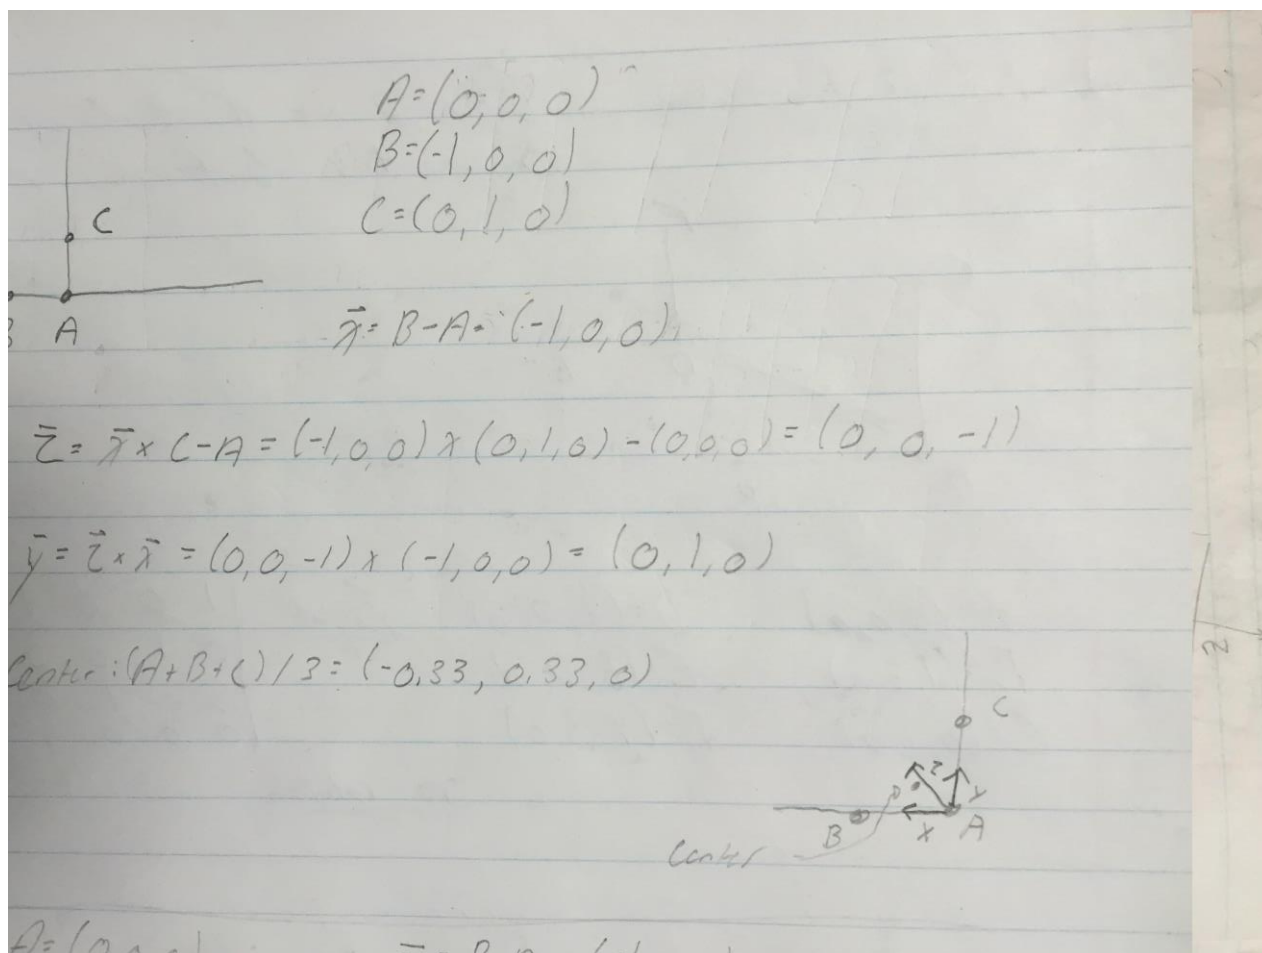 A=(0,0,0)
B=(-1,0,0)
C=(0,1,0)
C
B A
x⃗= B-A= (-1,0,0)
z̄= x̄ × C-A = (-1,0,0) × (0,1,0) - (0,0,0) = (0, 0, -1)
ȳ = z⃗ × x̄ = (0,0,-1) × (-1,0,0) = (0,1,0)
Center: (A+B+C)/3 = (-0.33, 0.33, 0)
C
z y
B x A
Center
z